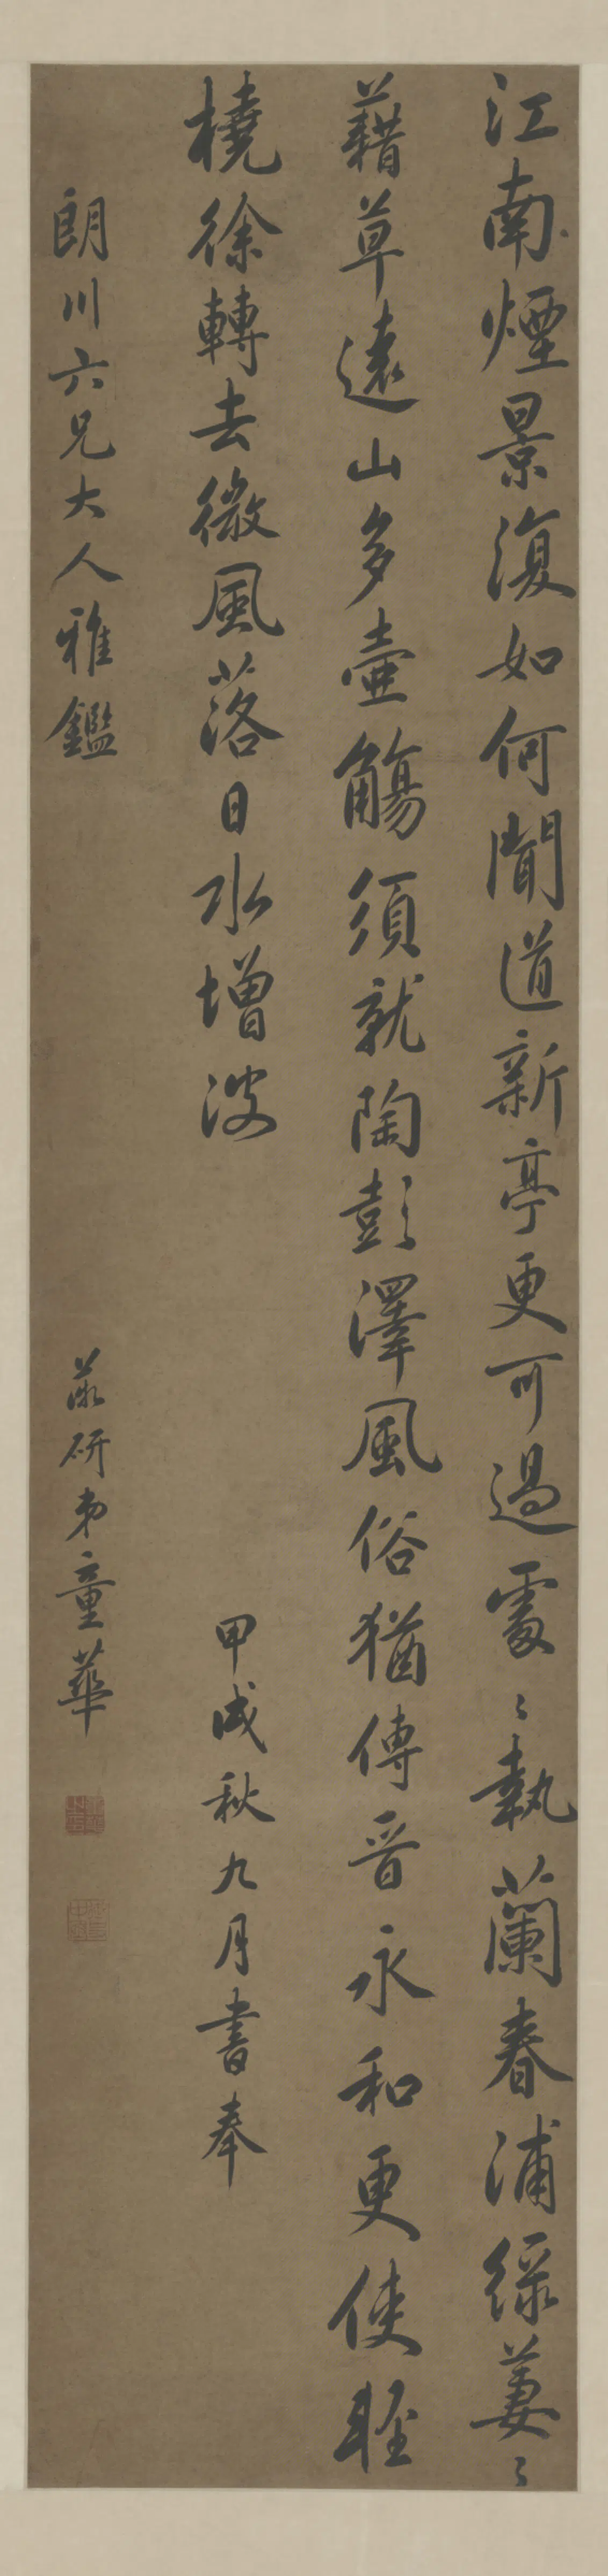 江南煙景復如何聞道新亭更可過處〻執蘭春浦綠萋〻
藉草遠山多壺觴須就陶彭澤風俗猶傳晉永和更使輕
橈徐轉去微風落日水增波
甲戌秋九月書奉
朗川六兄大人雅鑑
研弟童華